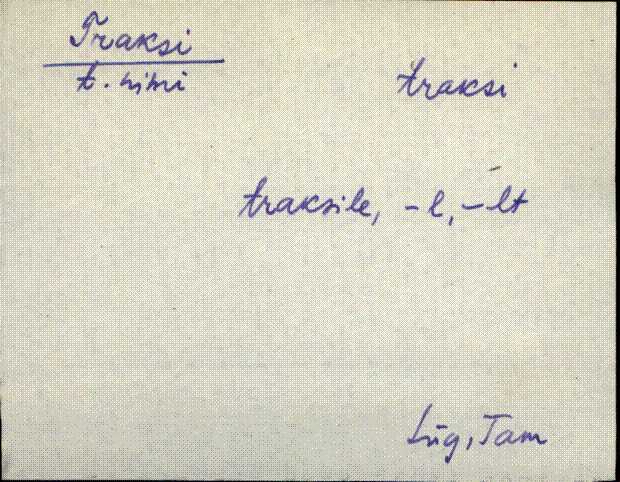 Traksi
t. nimi
traksi
traksile, -l, -lt
Lüg, Tam